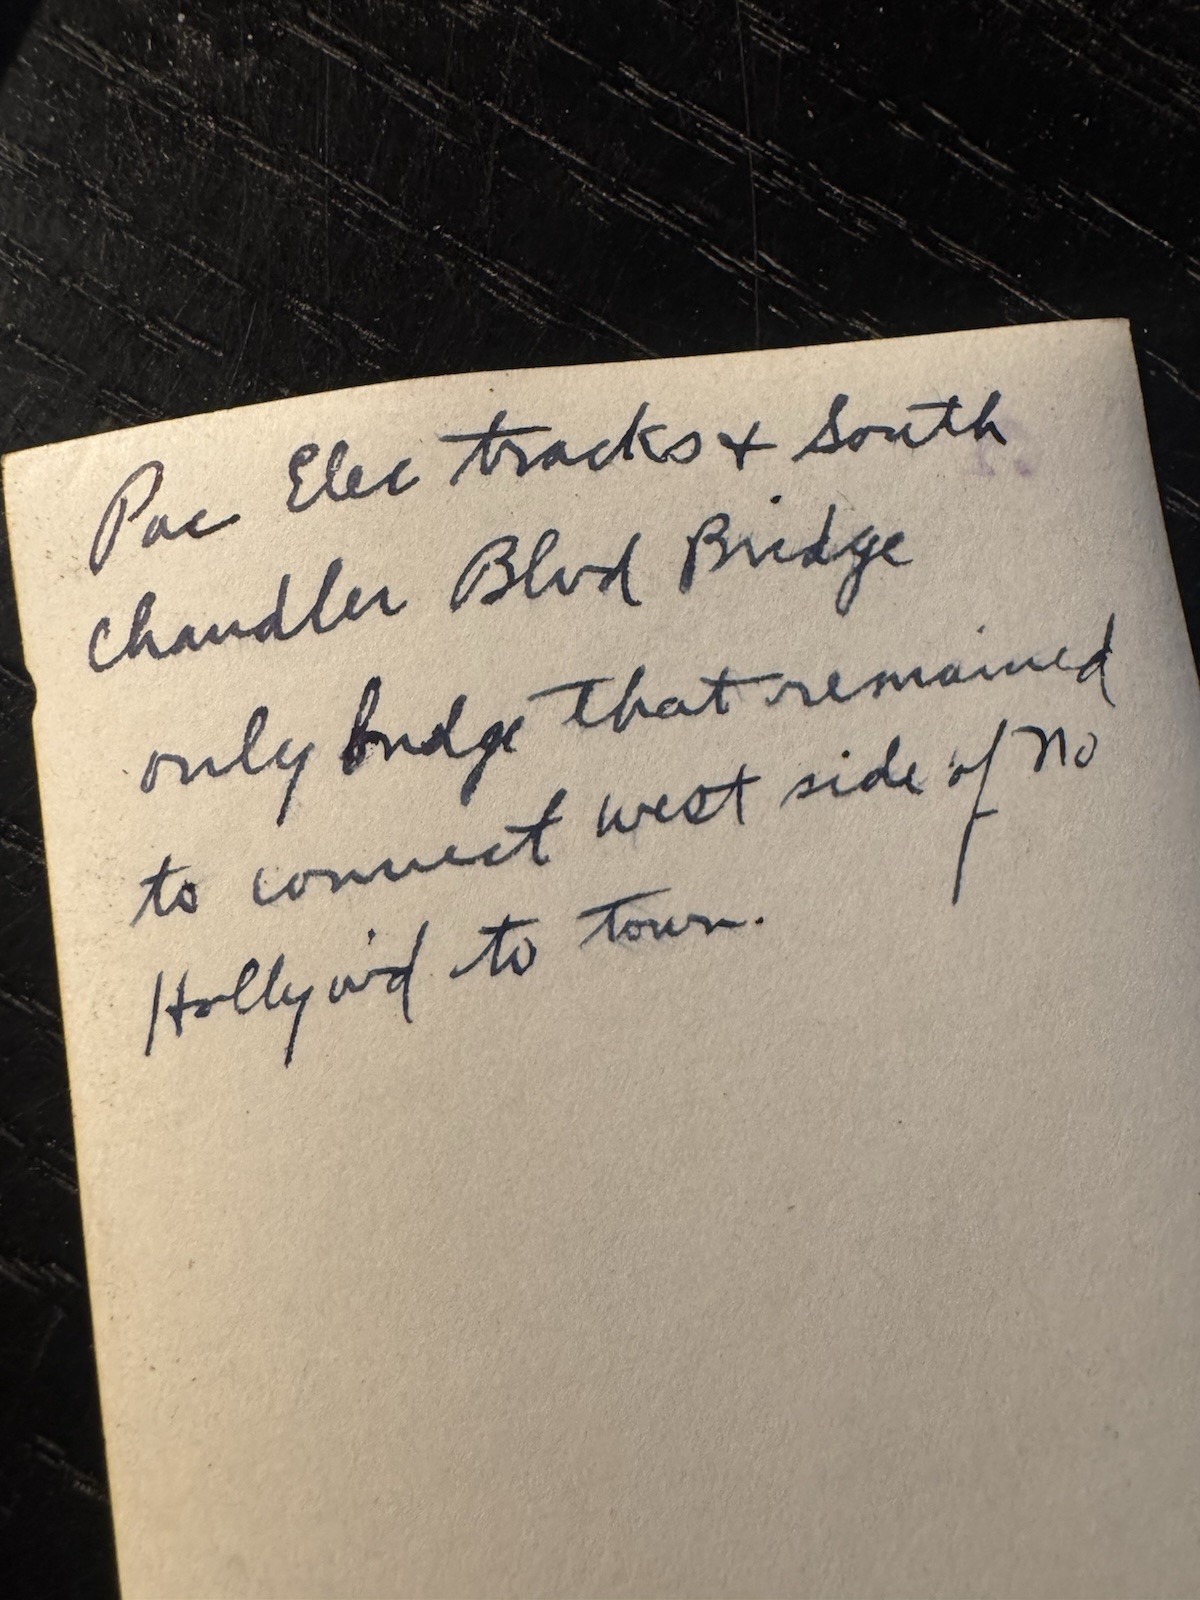 Pac Elec tracks + South
Chandler Blvd Bridge
only bridge that remained
to connect west side of No
Hollyw'd to town.